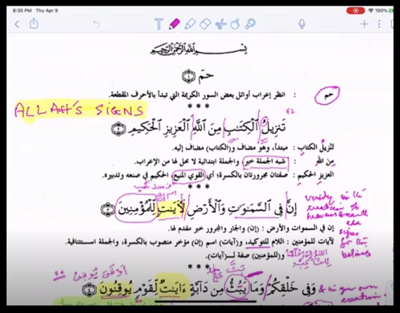 8:35 PM Thu Apr 9
بِسْمِ اللَّهِ الرَّحْمَٰنِ الرَّحِيمِ
حم
حم : انظر إعراب أوائل بعض السور الكريمة التي تبدأ بالأحرف المقطعة.
***
ALLAH'S SIGNS
تَنزِيلُ الْكِتَابِ مِنَ اللَّهِ الْعَزِيزِ الْحَكِيمِ
تنزيل الكتاب : مبتدأ، وهو مضاف و(الكتاب) مضاف إليه.
من الله : شبه الجملة خبر، والجملة ابتدائية لا محل لها من الإعراب.
العزيز الحكيم : صفتان مجرورتان بالكسرة؛ أي القوي المنيع، الحكيم في صنعه وتدبيره.
***
إِنَّ فِي السَّمَاوَاتِ وَالْأَرْضِ لَآيَاتٍ لِلْمُؤْمِنِينَ
إن في السموات والأرض : (إن) والجار والمجرور خبر مقدم لها.
لآيات للمؤمنين : اللام للتوكيد، و(آيات) اسم (إن) مؤخر منصوب بالكسرة، والجملة استئنافية.
و(للمؤمنين) صفة لـ(آيات).
***
وَفِي خَلْقِكُمْ وَمَا يَبُثُّ مِن دَابَّةٍ ءَايَاتٌ لِّقَوْمٍ يُوقِنُونَ